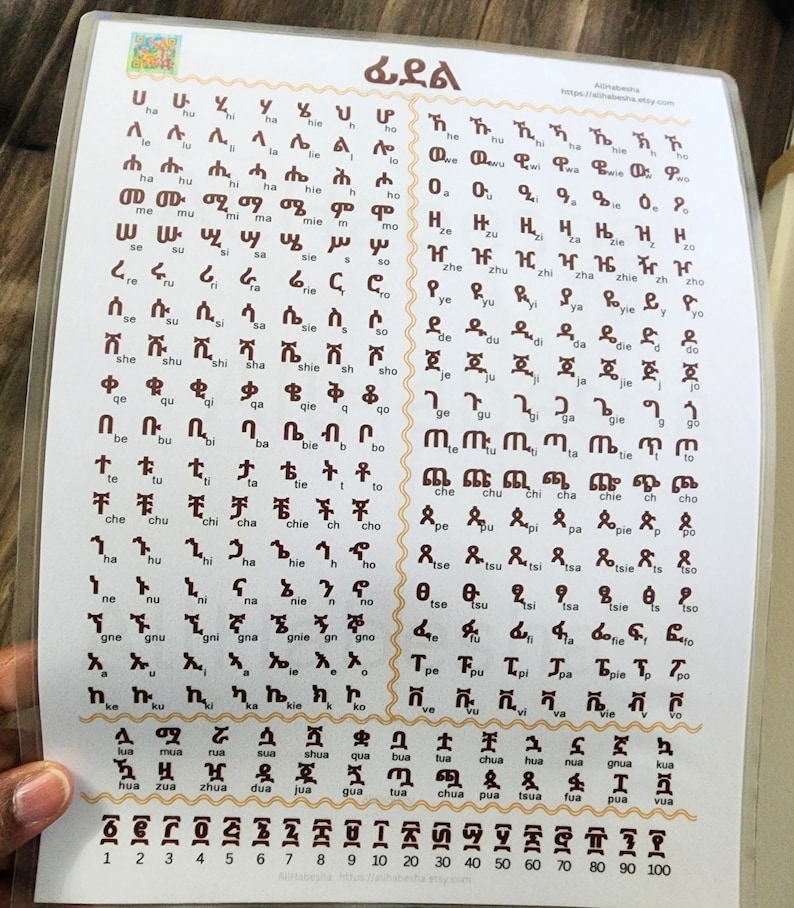 ፊደል
AllHabesha
https://allhabesha.etsy.com
ሀ ሁ ሂ ሃ ሄ ህ ሆ
ha hu hi ha hie h ho
ለ ሉ ሊ ላ ሌ ል ሎ
le lu li la lie l lo
ሐ ሑ ሒ ሓ ሔ ሕ ሖ
ha hu hi ha hie h ho
መ ሙ ሚ ማ ሜ ም ሞ
me mu mi ma mie m mo
ሠ ሡ ሢ ሣ ሤ ሥ ሦ
se su si sa sie s so
ረ ሩ ሪ ራ ሬ ር ሮ
re ru ri ra rie r ro
ሰ ሱ ሲ ሳ ሴ ስ ሶ
se su si sa sie s so
ሸ ሹ ሺ ሻ ሼ ሽ ሾ
she shu shi sha shie sh sho
ቀ ቁ ቂ ቃ ቄ ቅ ቆ
qe qu qi qa qie q qo
በ ቡ ቢ ባ ቤ ብ ቦ
be bu bi ba bie b bo
ተ ቱ ቲ ታ ቴ ት ቶ
te tu ti ta tie t to
ቸ ቹ ቺ ቻ ቼ ች ቾ
che chu chi cha chie ch cho
ኀ ኁ ኂ ኃ ኄ ኅ ኆ
ha hu hi ha hie h ho
ነ ኑ ኒ ና ኔ ን ኖ
ne nu ni na nie n no
ኘ ኙ ኚ ኛ ኜ ኝ ኞ
gne gnu gni gna gnie gn gno
አ ኡ ኢ ኣ ኤ እ ኦ
a u i a ie e o
ከ ኩ ኪ ካ ኬ ክ ኮ
ke ku ki ka kie k ko
ኸ ኹ ኺ ኻ ኼ ኽ ኾ
he hu hi ha hie h ho
ወ ዉ ዊ ዋ ዌ ው ዎ
we wu wi wa wie w wo
ዐ ዑ ዒ ዓ ዔ ዕ ዖ
a u i a ie e o
ዘ ዙ ዚ ዛ ዜ ዝ ዞ
ze zu zi za zie z zo
ዠ ዡ ዢ ዣ ዤ ዥ ዦ
zhe zhu zhi zha zhie zh zho
የ ዩ ዪ ያ ዬ ይ ዮ
ye yu yi ya yie y yo
ደ ዱ ዲ ዳ ዴ ድ ዶ
de du di da die d do
ጀ ጁ ጂ ጃ ጄ ጅ ጆ
je ju ji ja jie j jo
ገ ጉ ጊ ጋ ጌ ግ ጎ
ge gu gi ga gie g go
ጠ ጡ ጢ ጣ ጤ ጥ ጦ
te tu ti ta tie t to
ጨ ጩ ጪ ጫ ጬ ጭ ጮ
che chu chi cha chie ch cho
ጰ ጱ ጲ ጳ ጴ ጵ ጶ
pe pu pi pa pie p po
ጸ ጹ ጺ ጻ ጼ ጽ ጾ
tse tsu tsi tsa tsie ts tso
ፀ ፁ ፂ ፃ ፄ ፅ ፆ
tse tsu tsi tsa tsie ts tso
ፈ ፉ ፊ ፋ ፌ ፍ ፎ
fe fu fi fa fie f fo
ፐ ፑ ፒ ፓ ፔ ፕ ፖ
pe pu pi pa pie p po
ቨ ቩ ቪ ቫ ቬ ቭ ቮ
ve vu vi va vie v vo
ሏ ሟ ሯ ሷ ሿ ቋ ቧ ቷ ቿ ኋ ኗ ኟ ኳ
lua mua rua sua shua qua bua tua chua hua nua gnua kua
ዃ ዟ ዧ ዷ ጇ ጓ ጧ ጯ ጷ ጿ ፏ ፗ ቯ
hua zua zhua dua jua gua tua chua pua tsua fua pua vua
፩ ፪ ፫ ፬ ፭ ፮ ፯ ፰ ፱ ፲ ፳ ፴ ፵ ፶ ፷ ፸ ፹ ፺ ፻
1 2 3 4 5 6 7 8 9 10 20 30 40 50 60 70 80 90 100
AllHabesha https://allhabesha.etsy.com